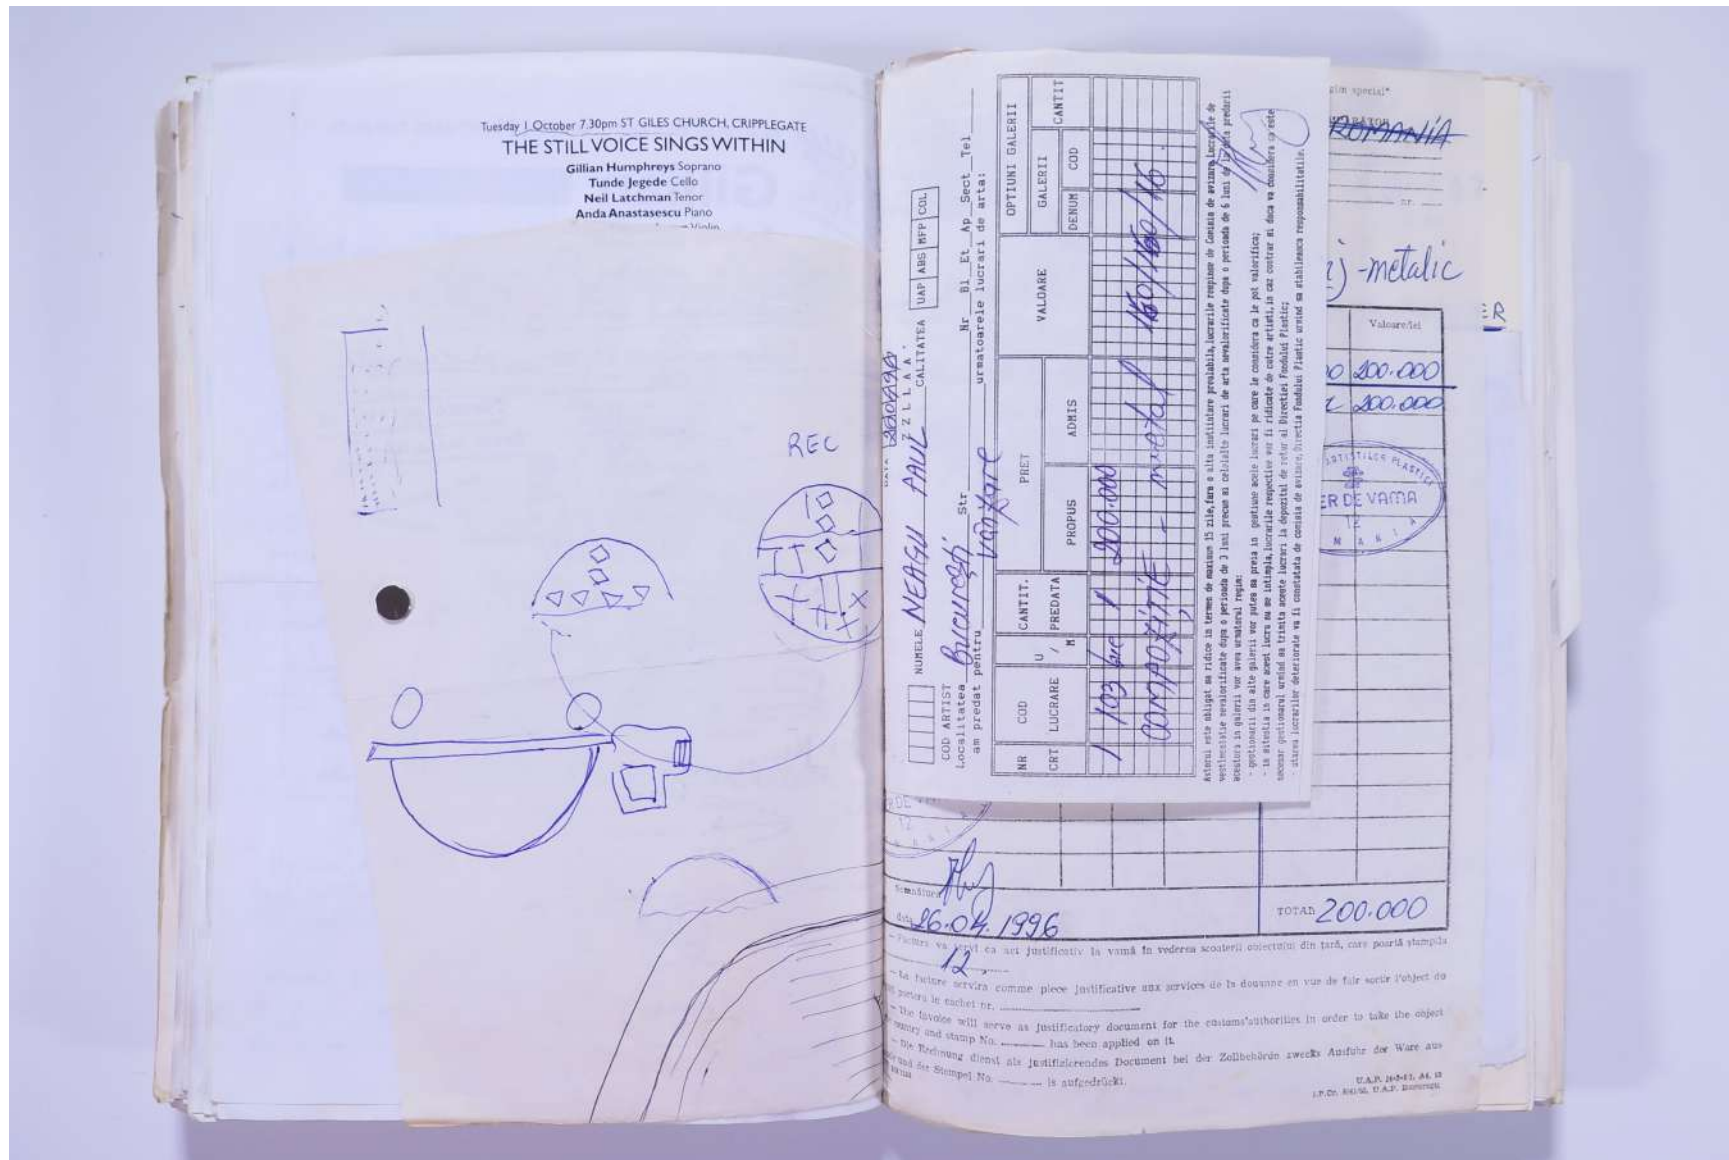 Tuesday 1 October 7.30pm ST GILES CHURCH, CRIPPLEGATE
THE STILL VOICE SINGS WITHIN
Gillian Humphreys Soprano
Tunde Jegede Cello
Neil Latchman Tenor
Anda Anastasescu Piano
Violin
REC
DATA
Z Z L L A A
NUMELE NEAGU PAUL CALITATEA UAP ABS MFP COL
COD ARTIST
Localitatea București Str Nr Bl Et Ap Sect Tel
am predat pentru vânzare urmatoarele lucrari de arta:
NR CRT
COD LUCRARE
U / M
CANTIT. PREDATA
PRET
PROPUS
ADMIS
VALOARE
OPTIUNI GALERII
GALERII
DENUM
COD
CANTIT
1 103 buc 1 200.000
COMPOZIȚIE - metal 150/160/16
Autorul este obligat sa ridice in termen de maximum 15 zile, fara o alta instiintare prealabila, lucrarile respinse de Comisia de avizare. Lucrarile de
vestimentatie nevalorificate dupa o perioada de 3 luni precum si celelalte lucrari de arta nevalorificate dupa o perioada de 6 luni de la data predarii
acestora in galerii vor avea urmatorul regim:
- gestionarii din alte galerii vor putea sa preia in gestiune acele lucrari pe care le considera ca le pot valorifica;
- in situatia in care acest lucru nu se intimpla, lucrarile respective vor fi ridicate de catre artisti, in caz contrar si daca va considera ca este
necesar gestionarul urmind sa trimita aceste lucrari la depozitul de retur al Directiei Fondului Plastic;
- starea lucrarilor deteriorate va fi constatata de comisia de avizare, Directia Fondului Plastic urmind sa stabileasca responsabilitatile.
special"
ROMANIA
nr.
-metalic
R
Valoare/lei
200.000
200.000
ARTISTILOR PLASTICI
DE VAMA
12
MANIA
12
Semnătura
data 26.04.1996
TOTAL 200.000
- Factura va servi ca act justificativ la vamă în vederea scoaterii obiectului din țară, care poartă ștampila
12
- La facture servira comme pièce justificative aux services de la douane en vue de fair sortir l'object du
portera le cachet nr.
- The Invoice will serve as justificatory document for the customs'authorities in order to take the object
country and stamp No. has been applied on it.
- Die Rechnung dienst als justifizierendes Document bei der Zollbehörde zwecks Ausfuhr der Ware aus
und der Stempel No. is aufgedrückt.